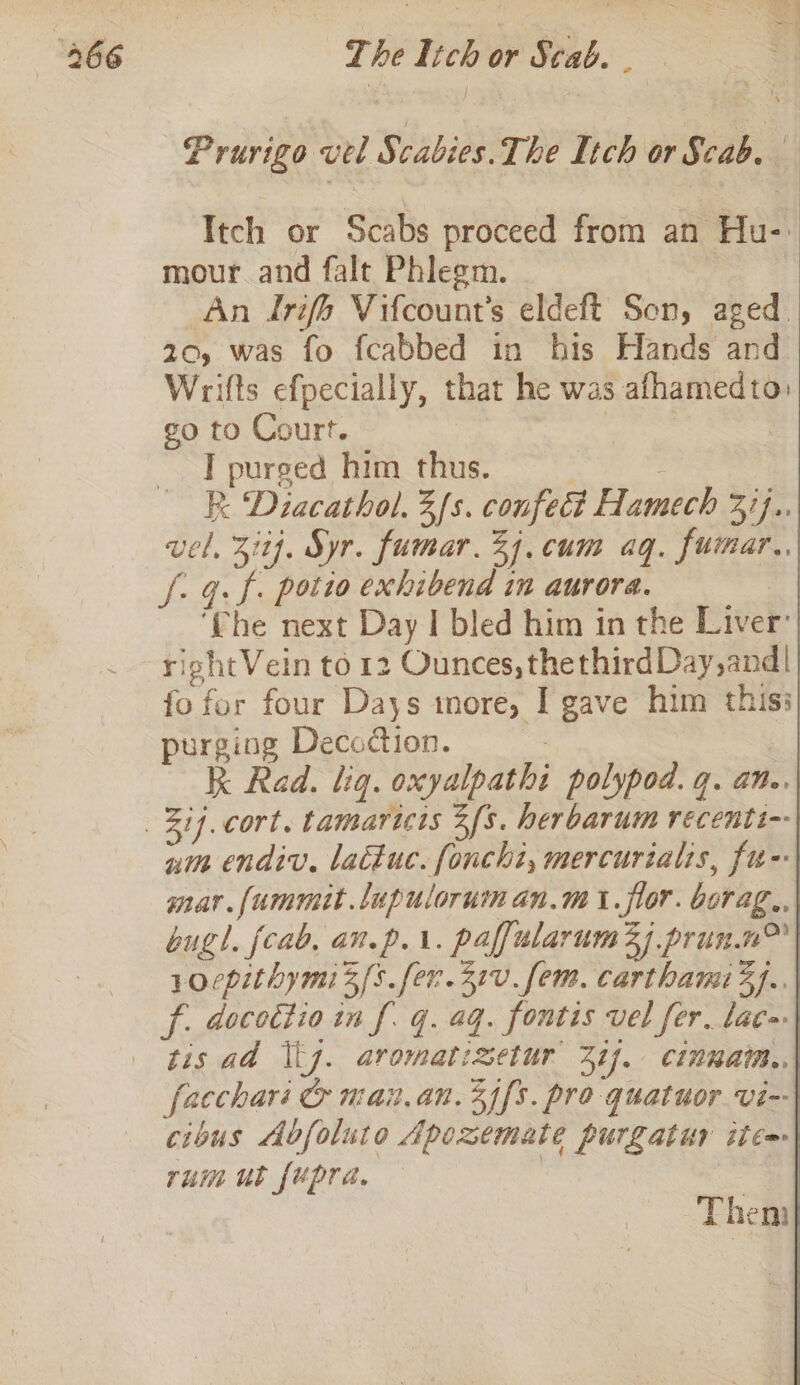 266 The Itch or Scab.
Prurigo vel Scabies. The Itch or Scab.
Itch or Scabs proceed from an Hu-
mour and ſalt Phlegm.
An Iriſh Viſcount's eldeſt Son, aged
20, was ſo ſcabbed in his Hands and
Wriſts eſpecially, that he was aſhamed to
go to Court.
I purged him thus.
℞ Diacathol. ℥ſs. confect Hamech ʒij.
vel. ʒiij. Syr. fumar. ℥j. cum aq. fumar.
ſ. q. f. potio exhibend in aurora.
The next Day I bled him in the Liver
right Vein to 12 Ounces, the third Day, and
ſo for four Days more, I gave him this
purging Decoction.
℞ Rad. liq. oxyalpathi polypod. q. an.
℥ij. cort. tamaricis ℥ſs. herbarum recenti-
um endiv. lactuc. ſonchi, mercurialis, fu-
mar. ſummit. lupulorum an. m 1. flor. borag.
bugl. ſcab. an. p. 1. paſſularum ℥j. prun. nº
10 epithymi ℥ſs. ſen. ℥iv. ſem. carthami ℥j.
f. dococtio in ſ. q. aq. fontis vel ſer. lac-
tis ad lbj. aromatizetur ʒij. cinnam.
ſacchari & man. an. ℥jſs. pro quatuor vi-
cibus Abſoluto Apozemate purgatur ite-
rum ut ſupra.
Then